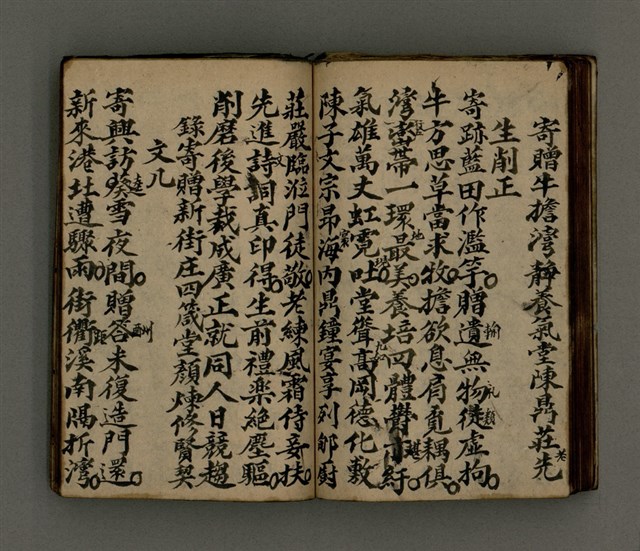 寄贈牛擔灣靜養氣堂陳鼎莊先
生削正
寄跡藍田作濫竽贈遺無物徒虛拘
牛方思草當求牧擔欲息肩覓耦俱
灣當帶一環最美養培四體鬱紆
氣雄萬丈虹霓吐堂聳高岡德化敷
陳子文宗昂海內鼎鐘宴享列郇廚
莊嚴臨涖門徒敬老練風霜侍妾扶
先進詩詞真印得生前禮樂絕塵驅
削磨後學裁成廣正就同人日競趨
錄寄贈新街庄四箴堂顏煉修賢契
文几
寄興訪葵雪夜間贈答未復造門還
新來港社遭驟雨街衢溪南隔折灣